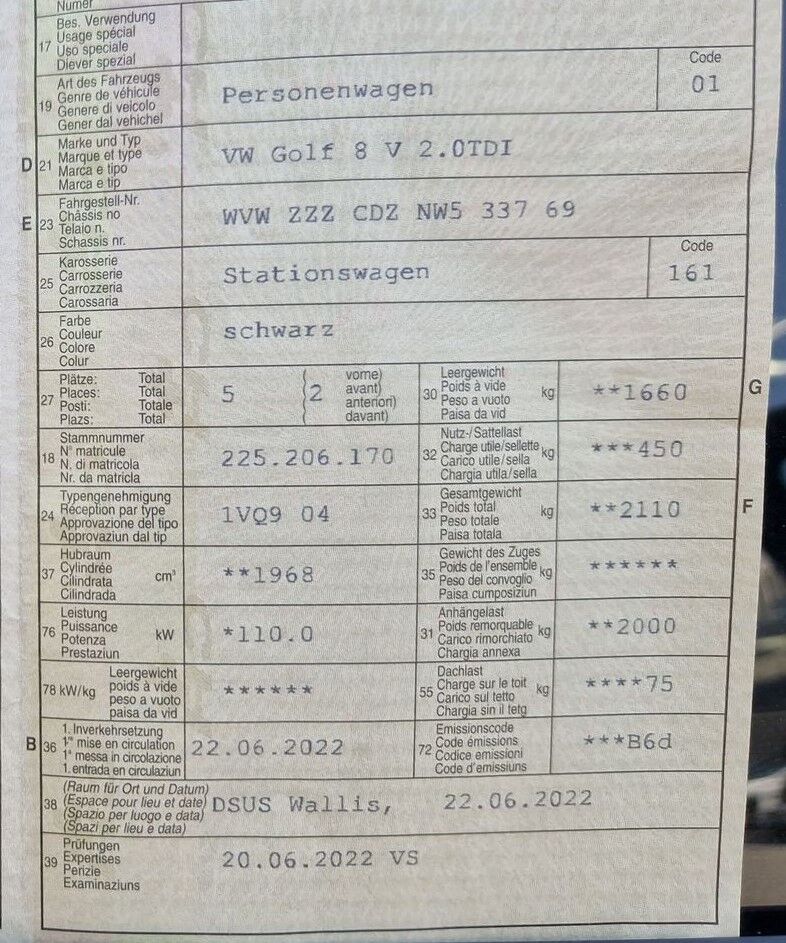 Numer
17 Bes. Verwendung
Usage spécial
Uso speciale
Diever spezial
19 Art des Fahrzeugs
Genre de véhicule
Genere di veicolo
Gener dal vehichel
Personenwagen
Code
01
D 21 Marke und Typ
Marque et type
Marca e tipo
Marca e tip
VW Golf 8 V 2.0TDI
E 23 Fahrgestell-Nr.
Châssis no
Telaio n.
Schassis nr.
WVW ZZZ CDZ NW5 337 69
25 Karosserie
Carrosserie
Carrozzeria
Carossaria
Stationswagen
Code
161
26 Farbe
Couleur
Colore
Colur
schwarz
27 Plätze: Total
Places: Total
Posti: Totale
Plazs: Total
5
( vorne)
(2 avant)
( anteriori)
( davant)
30 Leergewicht
Poids à vide
Peso a vuoto
Paisa da vid
kg
**1660
G
18 Stammnummer
N° matricule
N. di matricola
Nr. da matricla
225.206.170
32 Nutz-/Sattellast
Charge utile/sellette
Carico utile/sella
Chargia utila/sella
kg
***450
24 Typengenehmigung
Réception par type
Approvazione del tipo
Approvaziun dal tip
1VQ9 04
33 Gesamtgewicht
Poids total
Peso totale
Paisa totala
kg
**2110
F
37 Hubraum
Cylindrée
Cilindrata
Cilindrada
cm³
**1968
35 Gewicht des Zuges
Poids de l'ensemble
Peso del convoglio
Paisa cumposiziun
kg
******
76 Leistung
Puissance
Potenza
Prestaziun
kW
*110.0
31 Anhängelast
Poids remorquable
Carico rimorchiato
Chargia annexa
kg
**2000
78 kW/kg
Leergewicht
poids à vide
peso a vuoto
paisa da vid
******
55 Dachlast
Charge sur le toit
Carico sul tetto
Chargia sin il tetg
kg
****75
B 36 1. Inverkehrsetzung
1re mise en circulation
1a messa in circolazione
1. entrada en circulaziun
22.06.2022
72 Emissionscode
Code émissions
Codice emissioni
Code d'emissiuns
***B6d
38 (Raum für Ort und Datum)
(Espace pour lieu et date)
(Spazio per luogo e data)
(Spazi per lieu e data)
DSUS Wallis, 22.06.2022
39 Prüfungen
Expertises
Perizie
Examinaziuns
20.06.2022 VS